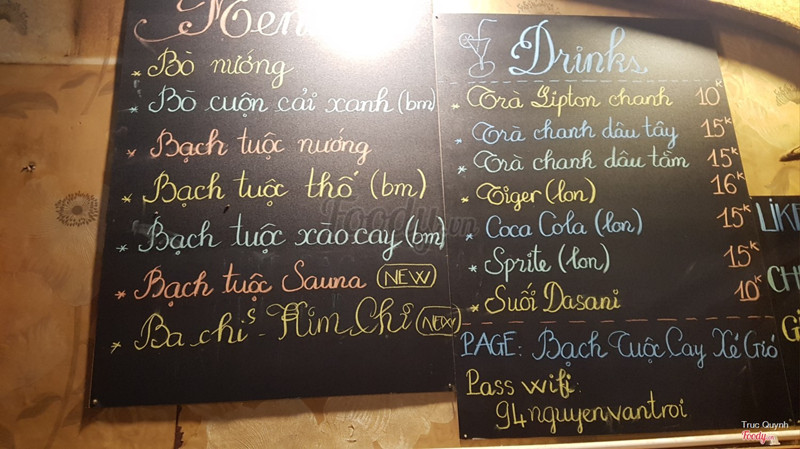 Menu
* Bò nướng
* Bò cuộn cải xanh (bm)
* Bạch tuộc nướng
* Bạch tuộc thố (bm)
* Bạch tuộc xào cay (bm)
* Bạch tuộc Sauna NEW
* Ba chỉ Kim Chi NEW
Drinks
* Trà Lipton chanh 10K
* Trà chanh dâu tây 15K
* Trà chanh dâu tằm 15K
* Tiger (lon) 16K
* Coca Cola (lon) 15K
* Sprite (lon) 15K
* Suối Dasani 10K
PAGE: Bạch Tuộc Cay Xé Gió
Pass wifi:
94nguyenvantroi
LIKE
CH
Foody.vn
Truc Quynh
Foody.vn